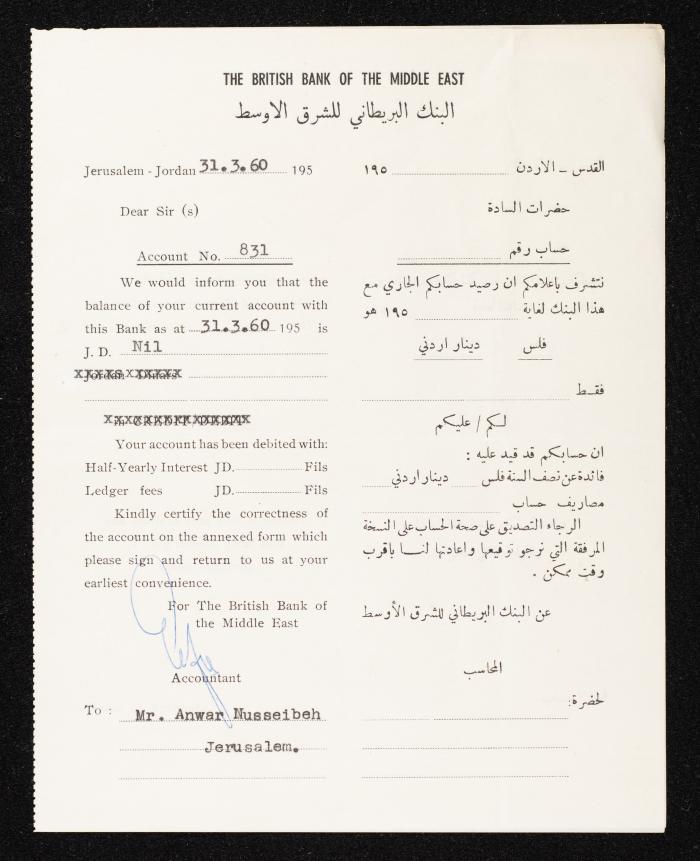 THE BRITISH BANK OF THE MIDDLE EAST
البنك البريطاني للشرق الاوسط
Jerusalem - Jordan 31.3.60 195
Dear Sir (s)
Account No. 831
We would inform you that the
balance of your current account with
this Bank as at 31.3.60 195 is
J. D. Nil
Jordan Dinars
in CREDIT/DEBIT
Your account has been debited with:
Half-Yearly Interest JD. Fils
Ledger fees JD. Fils
Kindly certify the correctness of
the account on the annexed form which
please sign and return to us at your
earliest convenience.
For The British Bank of
the Middle East
Accountant
To : Mr. Anwar Nusseibeh
Jerusalem.
القدس - الاردن ١٩٥
حضرات السادة
حساب رقم
نتشرف بإعلامكم ان رصيد حسابكم الجاري مع
هذا البنك لغاية ١٩٥ هو
فلس دينار اردني
فقط
لكم / عليكم
ان حسابكم قد قيد عليه :
فائدة عن نصف السنة فلس دينار اردني
مصاريف حساب
الرجاء التصديق على صحة الحساب على النسخة
المرفقة التي نرجو توقيعها واعادتها لنا باقرب
وقت ممكن .
عن البنك البريطاني للشرق الأوسط
المحاسب
لحضرة: